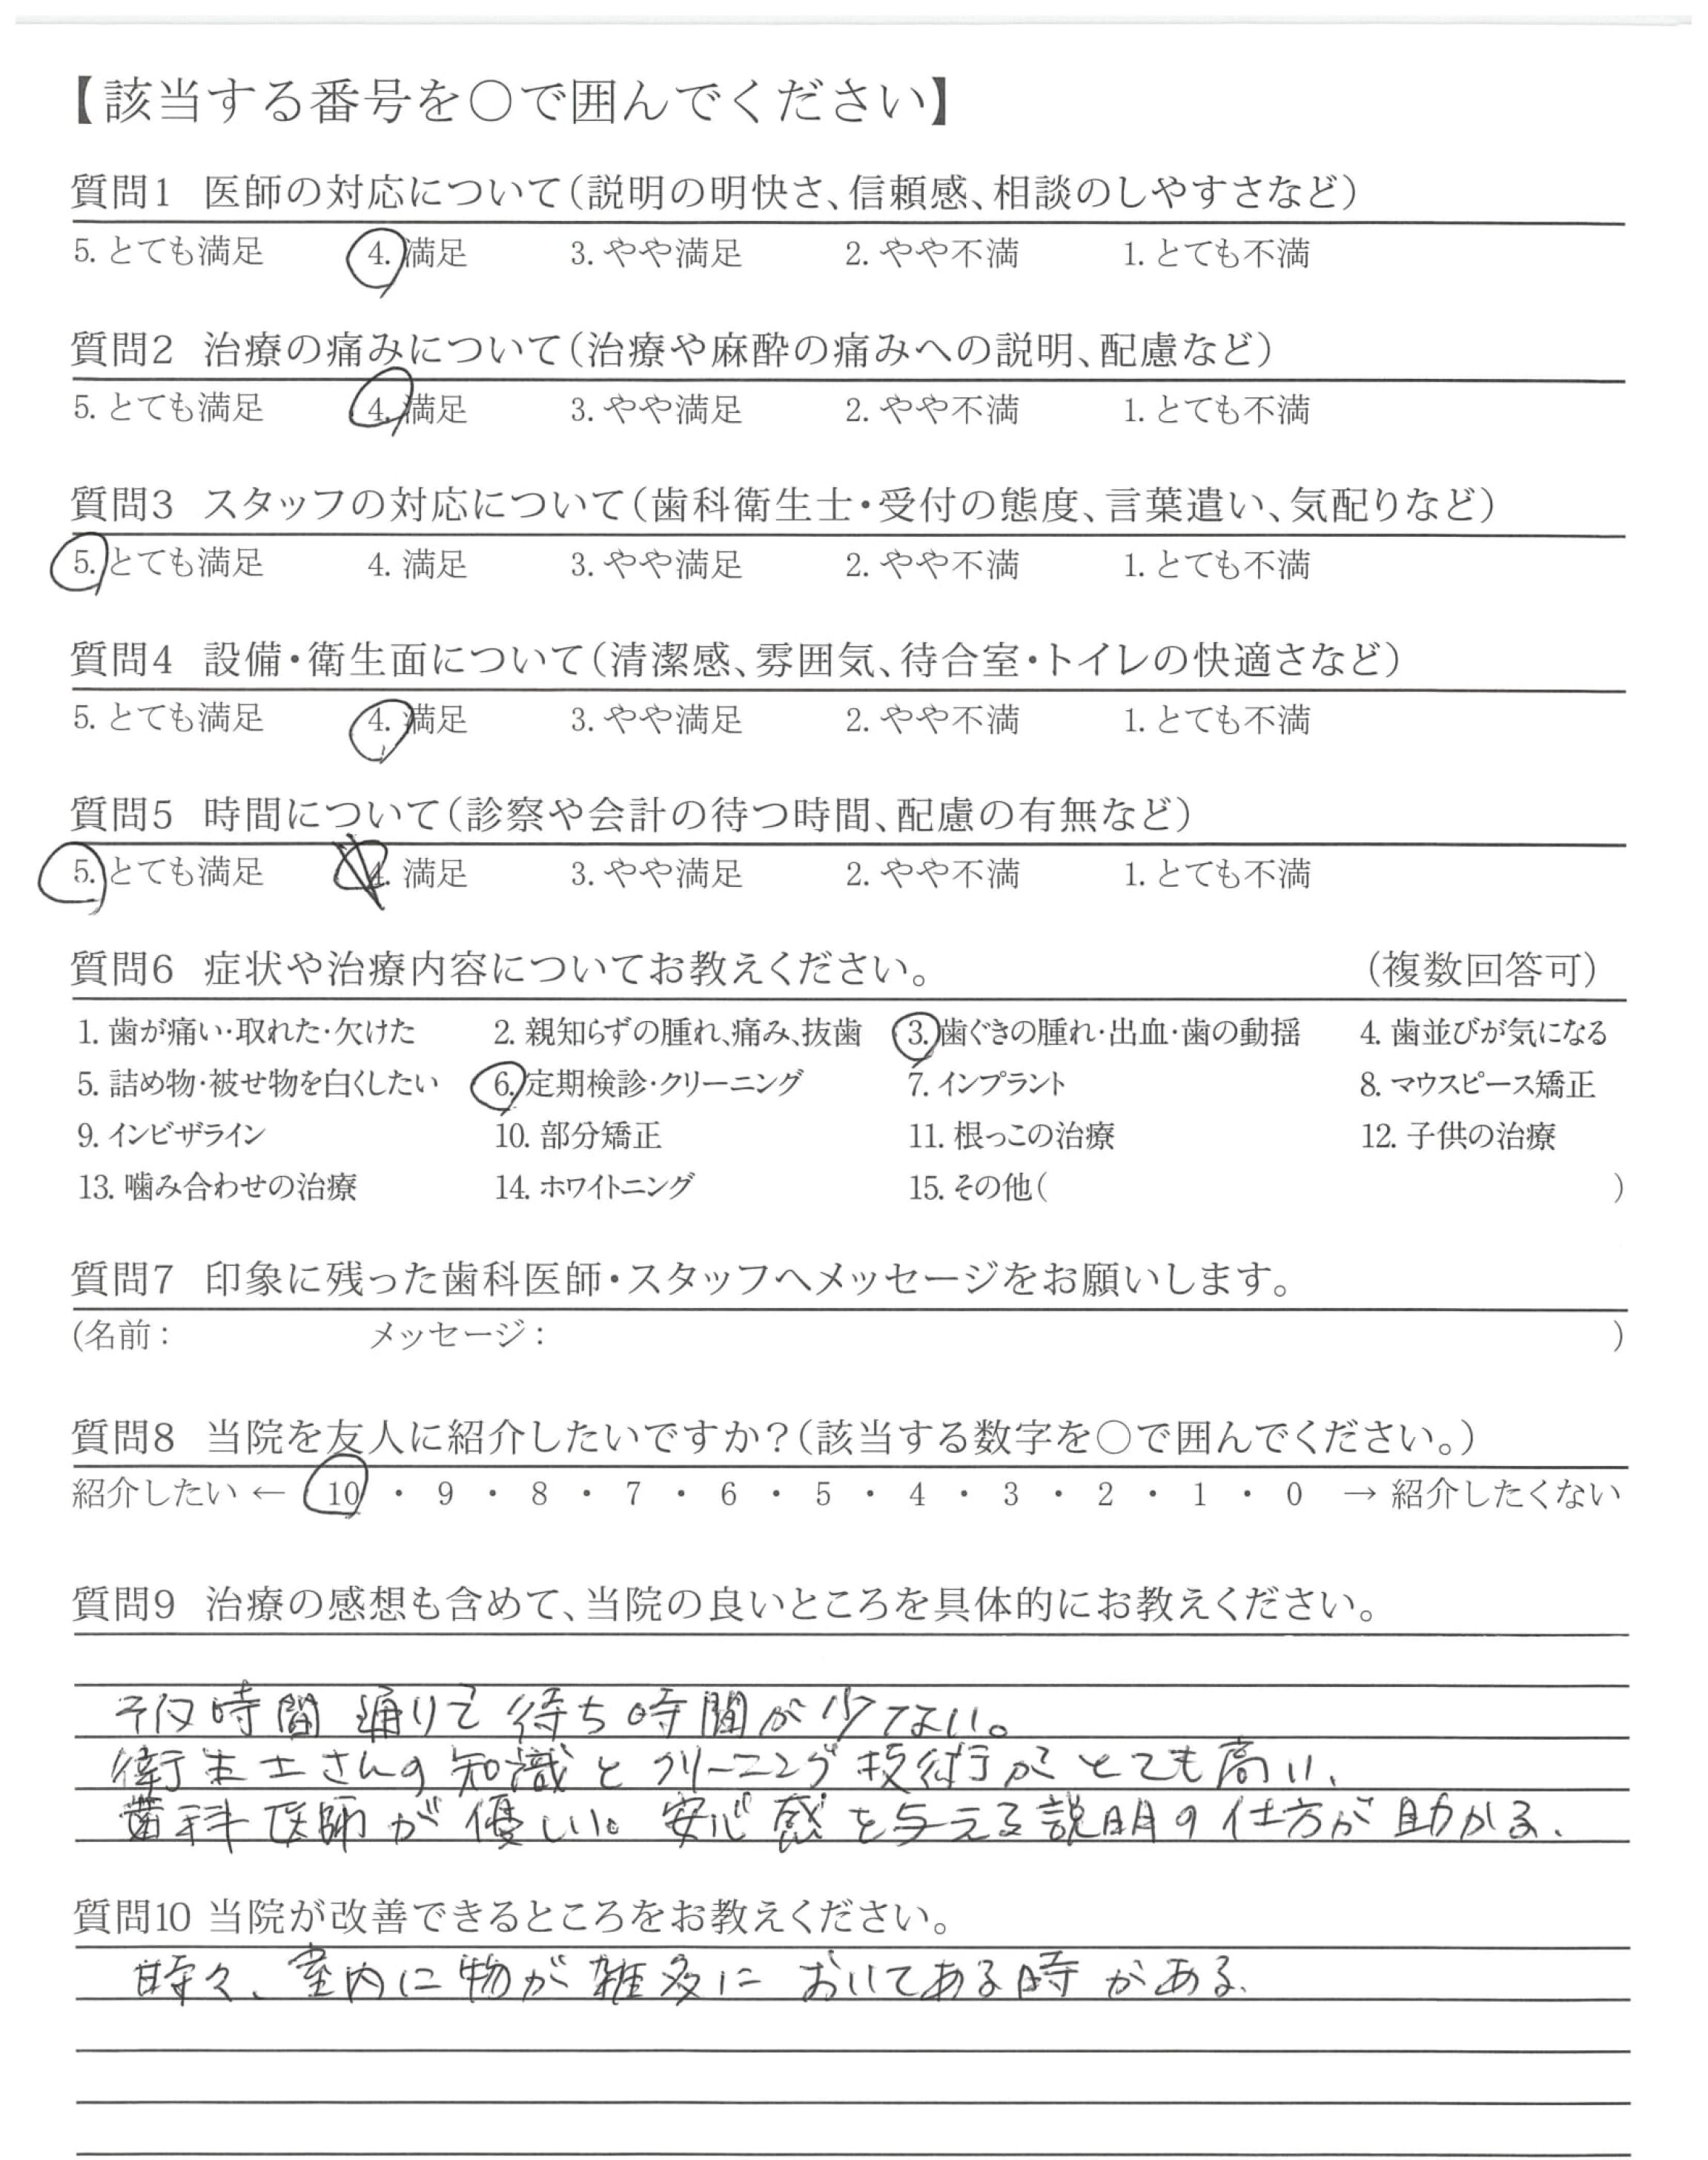 【該当する番号を○で囲んでください】
質問1 医師の対応について(説明の明快さ、信頼感、相談のしやすさなど)
5. とても満足 4. 満足 3. やや満足 2. やや不満 1. とても不満
質問2 治療の痛みについて(治療や麻酔の痛みへの説明、配慮など)
5. とても満足 4. 満足 3. やや満足 2. やや不満 1. とても不満
質問3 スタッフの対応について(歯科衛生士・受付の態度、言葉遣い、気配りなど)
5. とても満足 4. 満足 3. やや満足 2. やや不満 1. とても不満
質問4 設備・衛生面について(清潔感、雰囲気、待合室・トイレの快適さなど)
5. とても満足 4. 満足 3. やや満足 2. やや不満 1. とても不満
質問5 時間について(診察や会計の待つ時間、配慮の有無など)
5. とても満足 4. 満足 3. やや満足 2. やや不満 1. とても不満
質問6 症状や治療内容についてお教えください。 (複数回答可)
1. 歯が痛い・取れた・欠けた 2. 親知らずの腫れ、痛み、抜歯 3. 歯ぐきの腫れ・出血・歯の動揺 4. 歯並びが気になる
5. 詰め物・被せ物を白くしたい 6. 定期検診・クリーニング 7. インプラント 8. マウスピース矯正
9. インビザライン 10. 部分矯正 11. 根っこの治療 12. 子供の治療
13. 噛み合わせの治療 14. ホワイトニング 15. その他( )
質問7 印象に残った歯科医師・スタッフへメッセージをお願いします。
(名前: メッセージ: )
質問8 当院を友人に紹介したいですか?(該当する数字を○で囲んでください。)
紹介したい ← 10 ・ 9 ・ 8 ・ 7 ・ 6 ・ 5 ・ 4 ・ 3 ・ 2 ・ 1 ・ 0 → 紹介したくない
質問9 治療の感想も含めて、当院の良いところを具体的にお教えください。
時間通りで待ち時間が少ない。
衛生士さんの知識とクリーニング技術がとても高い、
歯科医師が優しい。安心感を与える説明の仕方が助かる、
質問10 当院が改善できるところをお教えください。
時々、室内に物が雑多においてある時がある、